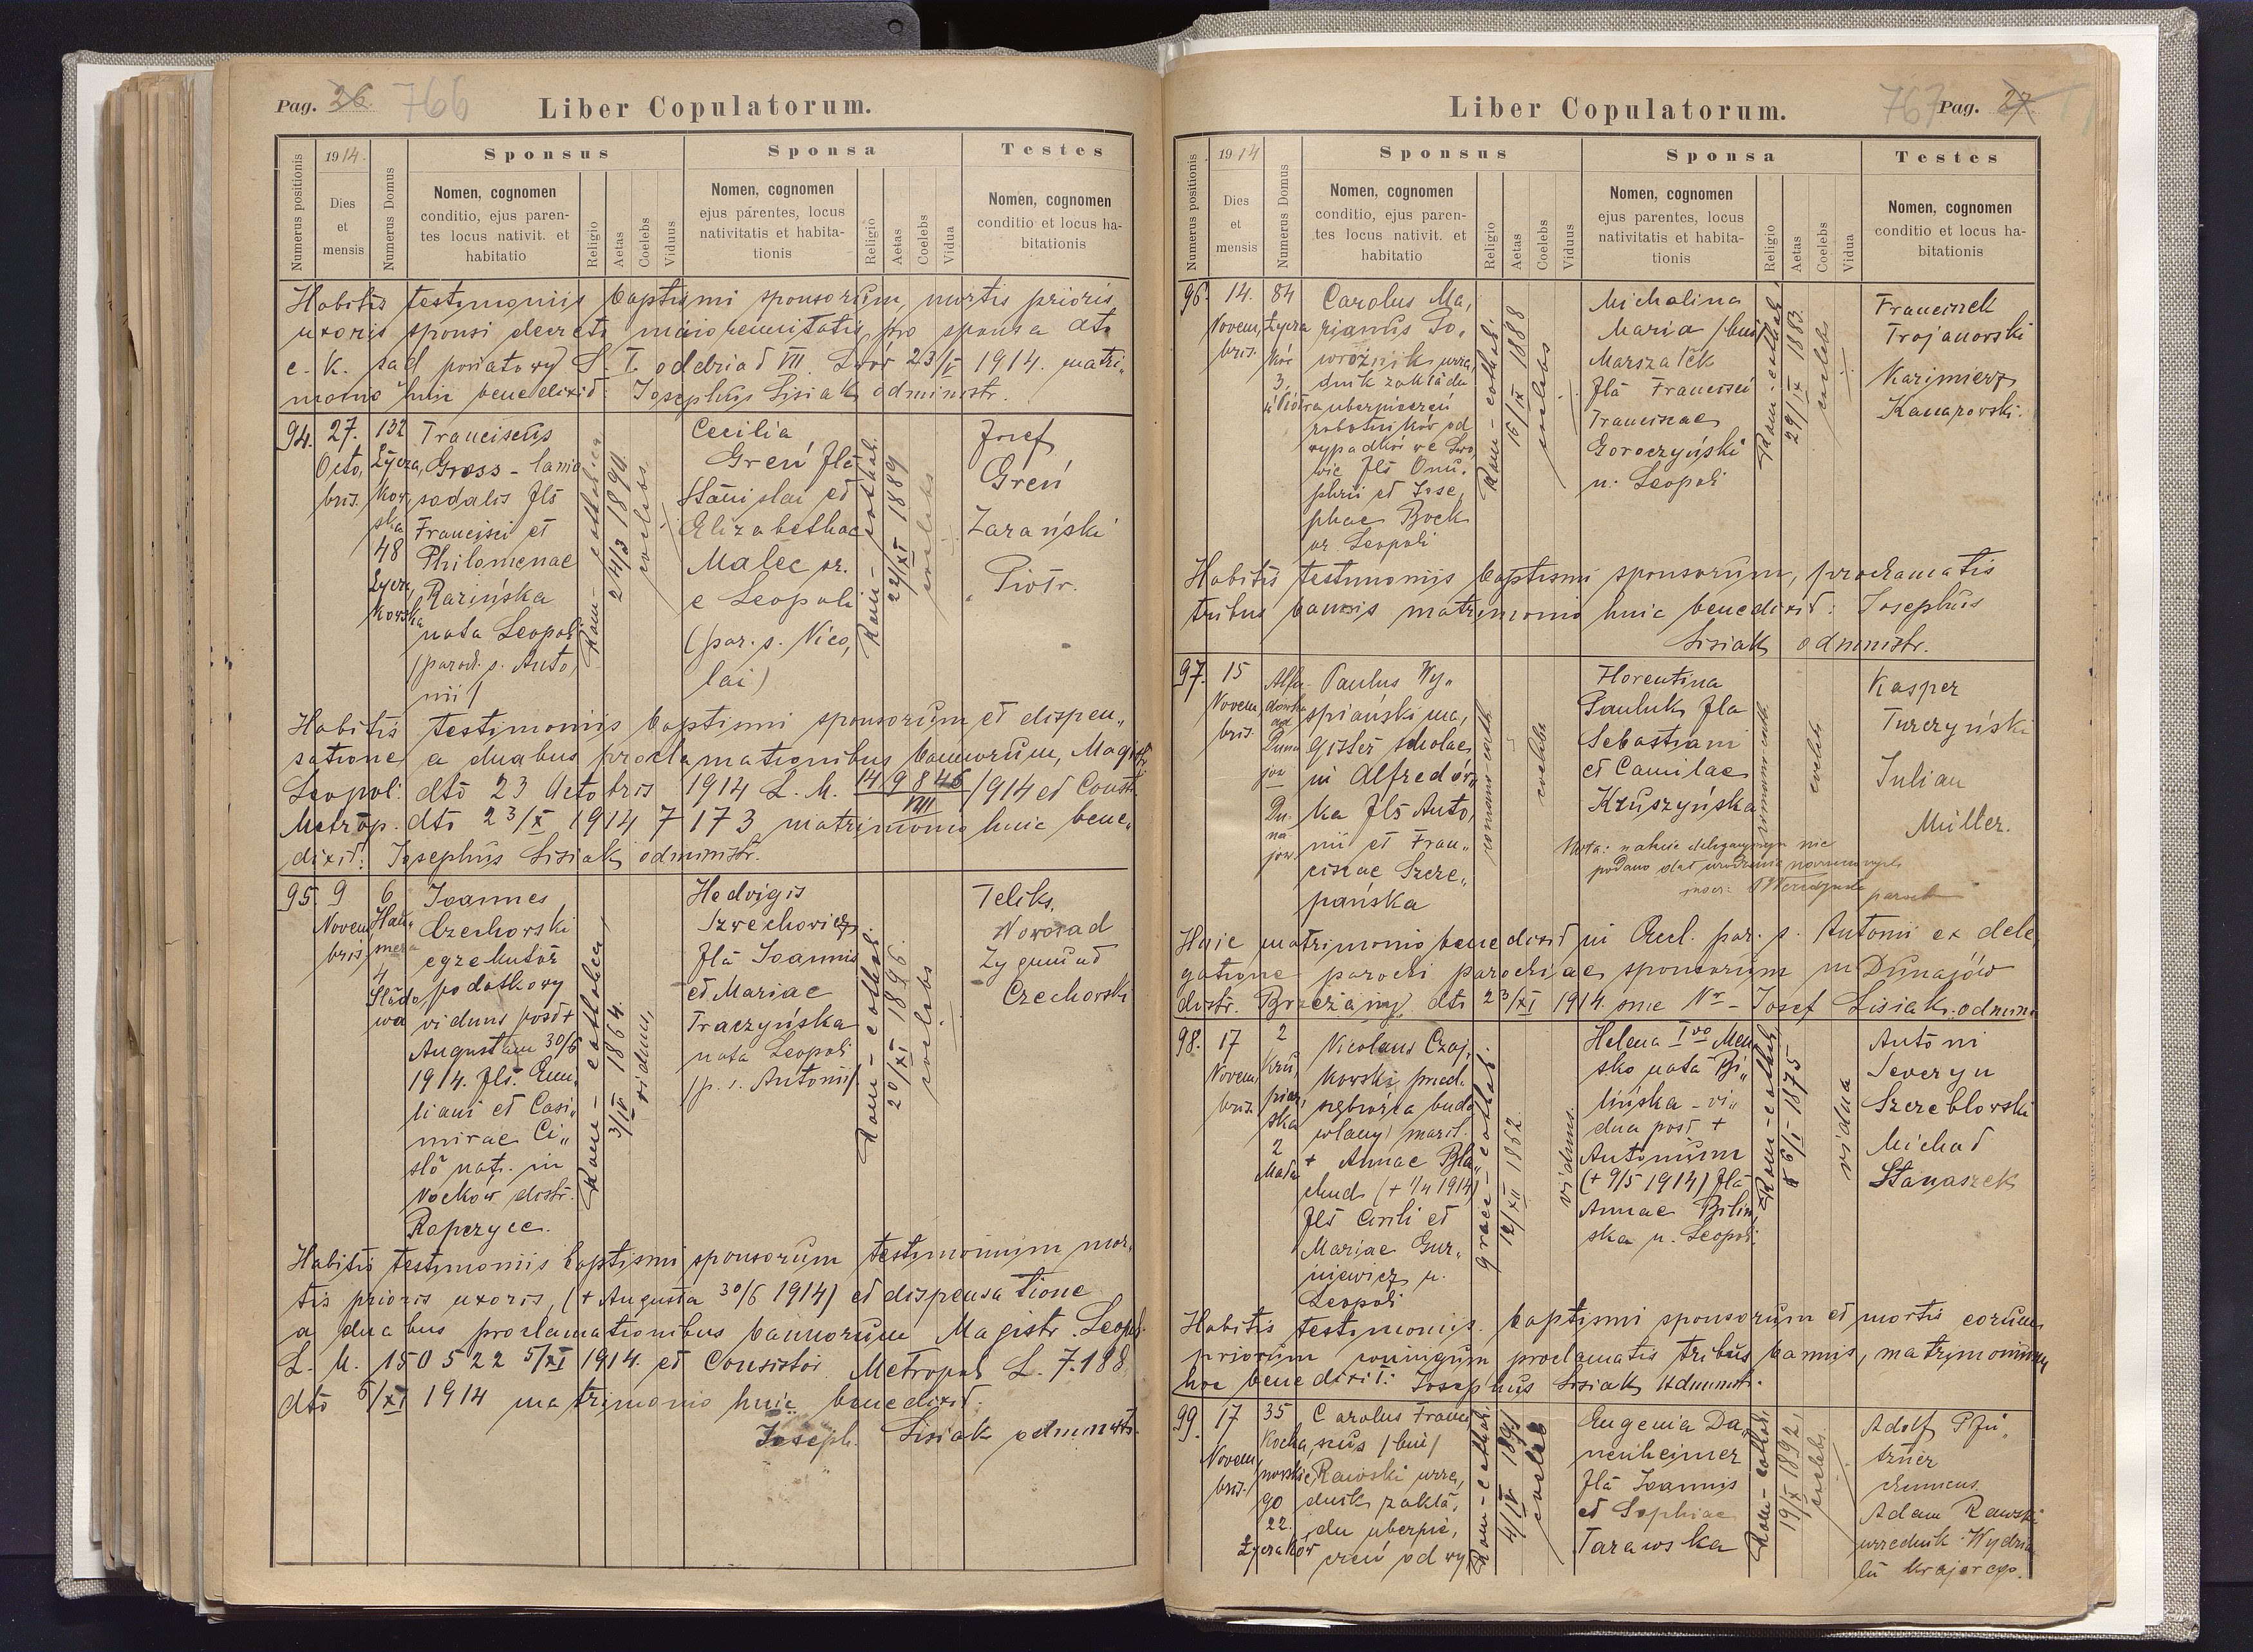 Pag. 26. 766
Liber Copulatorum.
Numerus positionis
1914.
Dies
et
mensis
Numerus Domus
Sponsus
Nomen, cognomen
conditio, ejus paren-
tes locus nativit. et
habitatio
Religio
Aetas
Coelebs
Viduus
Sponsa
Nomen, cognomen
ejus parentes, locus
nativitatis et habita-
tionis
Religio
Aetas
Coelebs
Vidua
Testes
Nomen, cognomen
conditio et locus ha-
bitationis
Habitis testimoniis baptismi sponsorum, mortis prioris
uxoris sponsi decreto maiorennitatis pro sponsa dto
c. K. sąd powiatowy S. I. oddział VII Lwów 23/V 1914. matri„
monio huic benedixit: Josephus Lisiak administr.
94.
27.
Octo,
bris.
132
Łycza,
kow,
ska
48
Łycza,
kowska
Franciscus
Gross - lanio
sodalis fls
Francisci et
Philomenae
Razińska
nata Leopoli
(paroch. s. Anto,
nii)
Rom - catholica
24/3 1890.
coelebs.
Cecilia
Greń fla
Stanislai et
Elizabethae
Malec or.
e Leopoli
(par. s. Nico,
lai)
Rom - cathol.
22/XI 1889
coelebs
Josef
Greń
Zarański
Piotr.
Habitis testimoniis baptismi sponsorum et dispen„
satione a duabus proclamationibus bannorum, Magistr.
Leopol: dto 23 Octobris 1914 L. M. 149846/VIII /1914 et Consist.
Metrop. dto 23/X 1914 7173 matrimonio huic bene„
dixit: Josephus Lisiak administr.
95.
9
Novem
bris
6
4
Joannes
Czechowski
egzekutor
podatkowy
viduus post +
Augustam 30/6
1914. fls. Emi
liani et Casi„
mirae Ci„
sło nat. in
distr.
Ropczyce.
Rom - catholica
3/IV 1864.
viduus,
Hedvigis
Szwechowicz
fla Joannis
et Mariae
Traczyńska
nata Leopoli
(p. s. Antonii)
Rom - cathol.
20/XI 1896.
coelebs
Feliks
Noworad
Zygmund
Czechowski
Habitis testimoniis baptismi sponsorum testimonium mor,
tis prioris uxoris, (+ Augusta 30/6 1914) et dispensatione
a duabus proclamationibus bannorum Magistr. Leopol.
L. M. 150522 5/XI 1914. et Consistor Metropol L. 7.188
dto 6/XI 1914 matrimonio huic benedixit.
Joseph. Lisiak administr.
Liber Copulatorum.
767 Pag. 27.
Numerus positionis
1914
Dies
et
mensis
Numerus Domus
Sponsus
Nomen, cognomen
conditio, ejus paren-
tes locus nativit. et
habitatio
Religio
Aetas
Coelebs
Viduus
Sponsa
Nomen, cognomen
ejus parentes, locus
nativitatis et habita-
tionis
Religio
Aetas
Coelebs
Vidua
Testes
Nomen, cognomen
conditio et locus ha-
bitationis
96.
14.
Novem,
bris.
84
Łycza
ków
3.
Piotra
Carolus Ma,
rianus Go,
woźnik urzę,
dnik zakładu
ubezpieczeń
robotników od
wypadków we Lwo,
wie fls Onu,
phrii et Jose,
phae Bock
or. Leopoli
Rom - cathol.
16/IX 1888
coelebs
Michalina
Maria (bin)
Marszałek
fla Francisci
Franciscae
Goroczyński
n. Leopoli
Rom - cathol.
29/IX 1883.
coelebs
Franciszek
Trojanowski
Kazimierz
Kanarowski.
Habitis testimoniis baptismi sponsorum, proclamatis
tribus bannis matrimonio huic benedixit: Josephus
Lisiak administr.
97.
15
Novem,
bris.
Alfre
dówka
ad
Duna
jow
Du-
na
jow
Paulus Wy„
spiański ma,
gister scholae
in Alfredów,
ka fls Anto,
nii et Fran„
ciscae Szcze„
pańska
romano-cath
coelebs
Florentina
Pauluk fla
Sebastiani
et Camilae
Kruszyńska
romano-cath.
coelebs
Kasper
Turczyński
Julian
Müller.
Nota: nie
podano dat urodzenia
paroch
Huic matrimonio benedixit in Eccl. par. s. Antonii ex dele
gatione parochi parochiae sponsorum in Dunajów
distr. Brzeżany, dto 23/XI 1914. sine Nr - Josef Lisiak. admini.
98.
17
Novem,
bris.
2
Kru
piar,
ska
2
Nicolaus Czaj,
kowski, przed.
siębiorca budo
wlany) marit.
+ Annae Bla„
chud (+ 1/4 1914)
fls Cirili et
Mariae Gur„
niewicz n.
Leopoli
graec - cathol.
12/XII 1862.
viduus.
Helena Ivo Men
sko nata Bi„
lińska - vi„
dua post +
Antonium
(+ 9/5 1914) fla
Annae Bilin,
ska n. Leopoli.
Rom - cathol.
6/II 1875
vidua
Antoni
Seweryn
Szczeblowski
Michał
Stanaszek
Habitis testimoniis baptismi sponsorum et mortis eorum
priorum coniugum proclamatis tribus bannis, matrimonium
hoc benedixit: Josephus Lisiak Administr.
99.
17
Novem
bris.
35
Kocha
nowskie,
90
22.
Łyczaków
Carolus Franci
scus (bin)
Rawski urzę,
dnik zakła,
du ubezpie,
czeń od wy
Rom - cathol.
4/IV 1891
coelebs
Eugenia Da,
nenheimer
fla Joannis
et Sophiae
Tarawska
Rom - cathol.
19/X 1892
coelebs.
Adolf Pfü„
tzner
chemicus.
Adam Rawski
urzędnik Wydzia
łu krajowego.